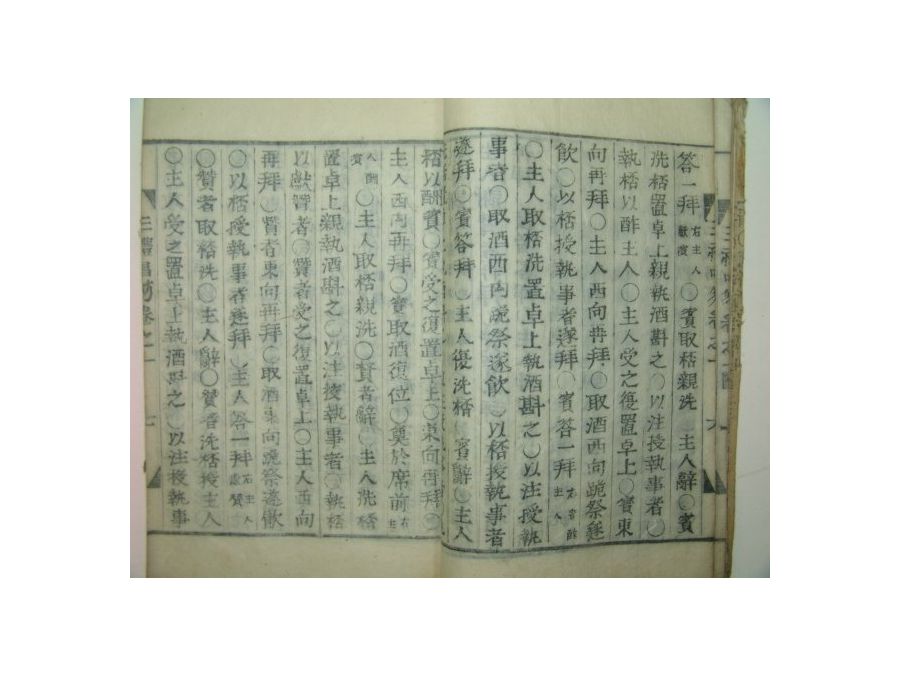 答一拜 右主人獻賓 ○賓取桮親洗○主人辭○賓
洗桮置卓上親執酒斟之○以注授執事者○
執桮以酢主人○主人受之復置卓上○賓東
向再拜○主人西向再拜○取酒西向跪祭遂
飮○以桮授執事者遂拜○賓答一拜 右賓酢主人
○主人取桮洗置卓上執酒斟之○以注授執
事者○取酒西向跪祭遂飮○以桮授執事者
遂拜○賓答拜○主人復洗桮○賓辭○主人
桮以酬賓○賓受之復置卓上○東向再拜○
主人西向再拜○賓取酒復位○奠於席前 右主
人酬賓 ○主人取桮親洗○贊者辭○主人洗桮
置卓上親執酒斟之○以注授執事者○執桮
以獻贊者○贊者受之復置卓上○主人西向
再拜○贊者東向再拜○取酒東向跪祭遂飮
○以桮授執事者遂拜○主人答一拜 右主人獻贊
○贊者取桮洗○主人辭○贊者洗桮授主人
○主人受之置卓上執酒斟之○以注授執事
三禮 卷之一 七